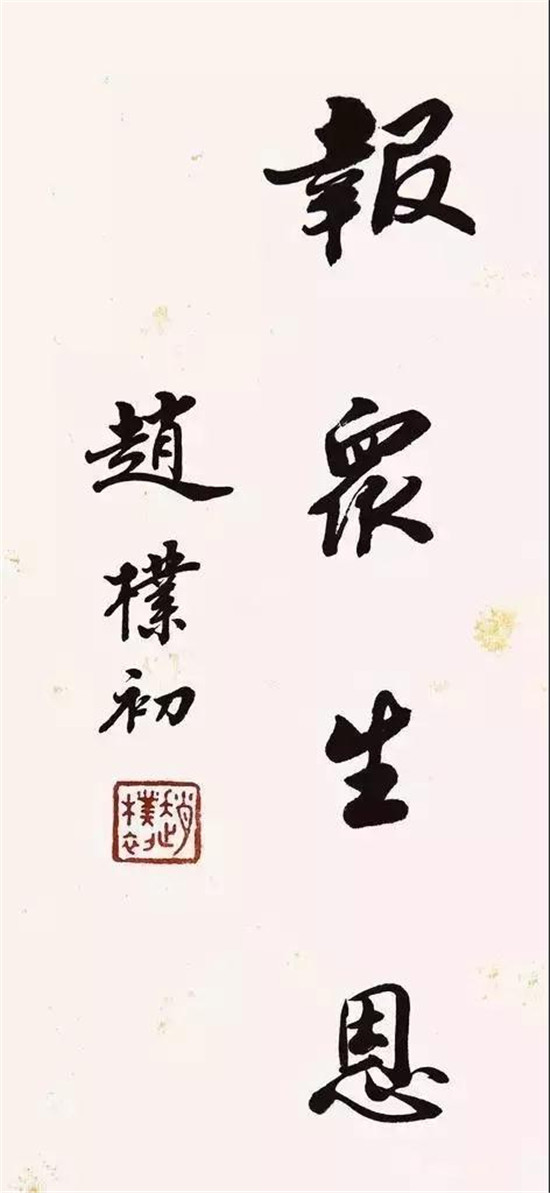 報眾生恩
趙樸初
趙樸初